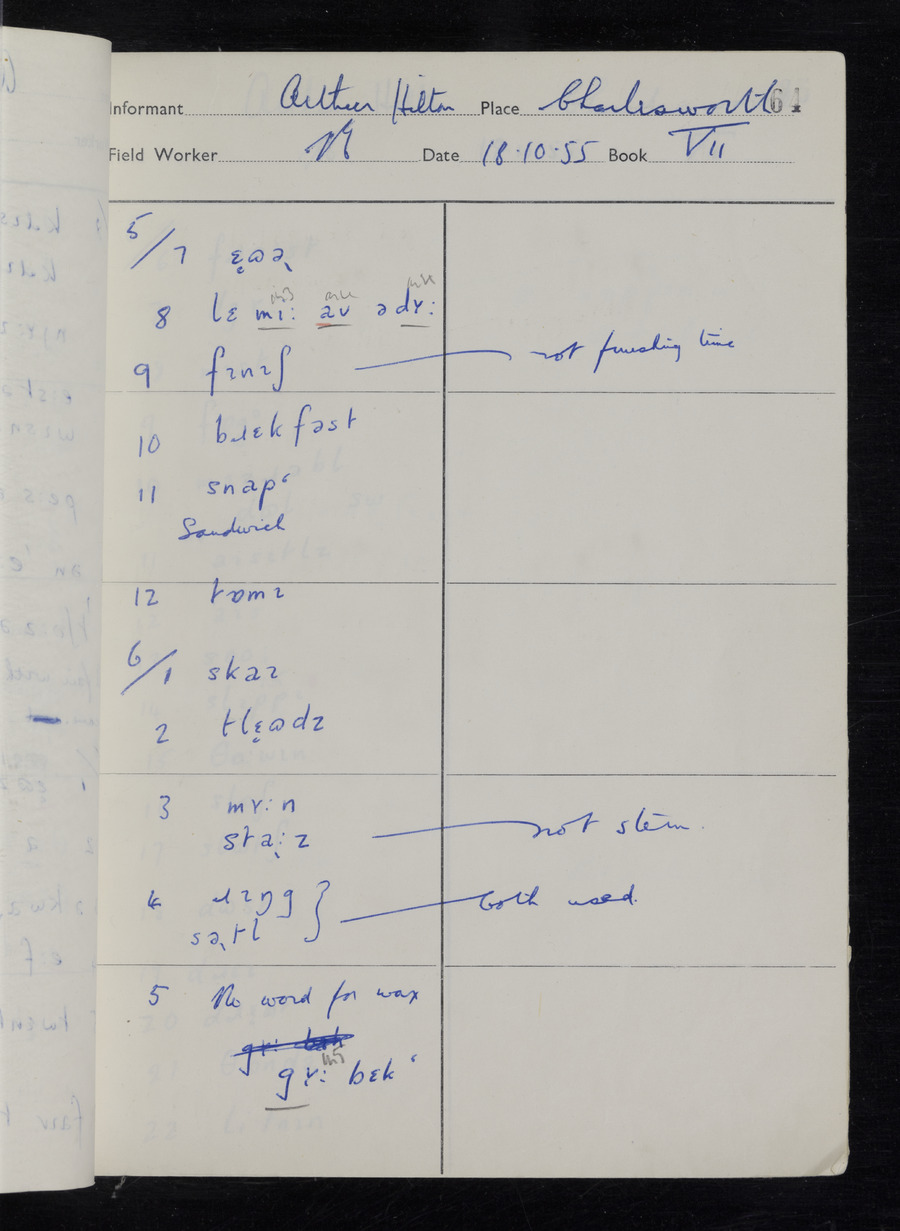 Informant Arthur Hilton Place Charlesworth 64
Field Worker Date 18·10·55 Book VII
5/7 ɛ̨ɷə̨
8 lɛ mɪ: av ədʏ:
9 fɪnɪʃ not finishing time
10 bɹɛkfəst
11 snapʻ
Sandwich
12
6/1 skaɪ
2 tlɛ̨ɷdz
3 mʏ:n
sta̩:z not stern.
4 ɹɪŋg } both used.
sə̩tl
5 No word for wax
gʏ: bɛkʻ